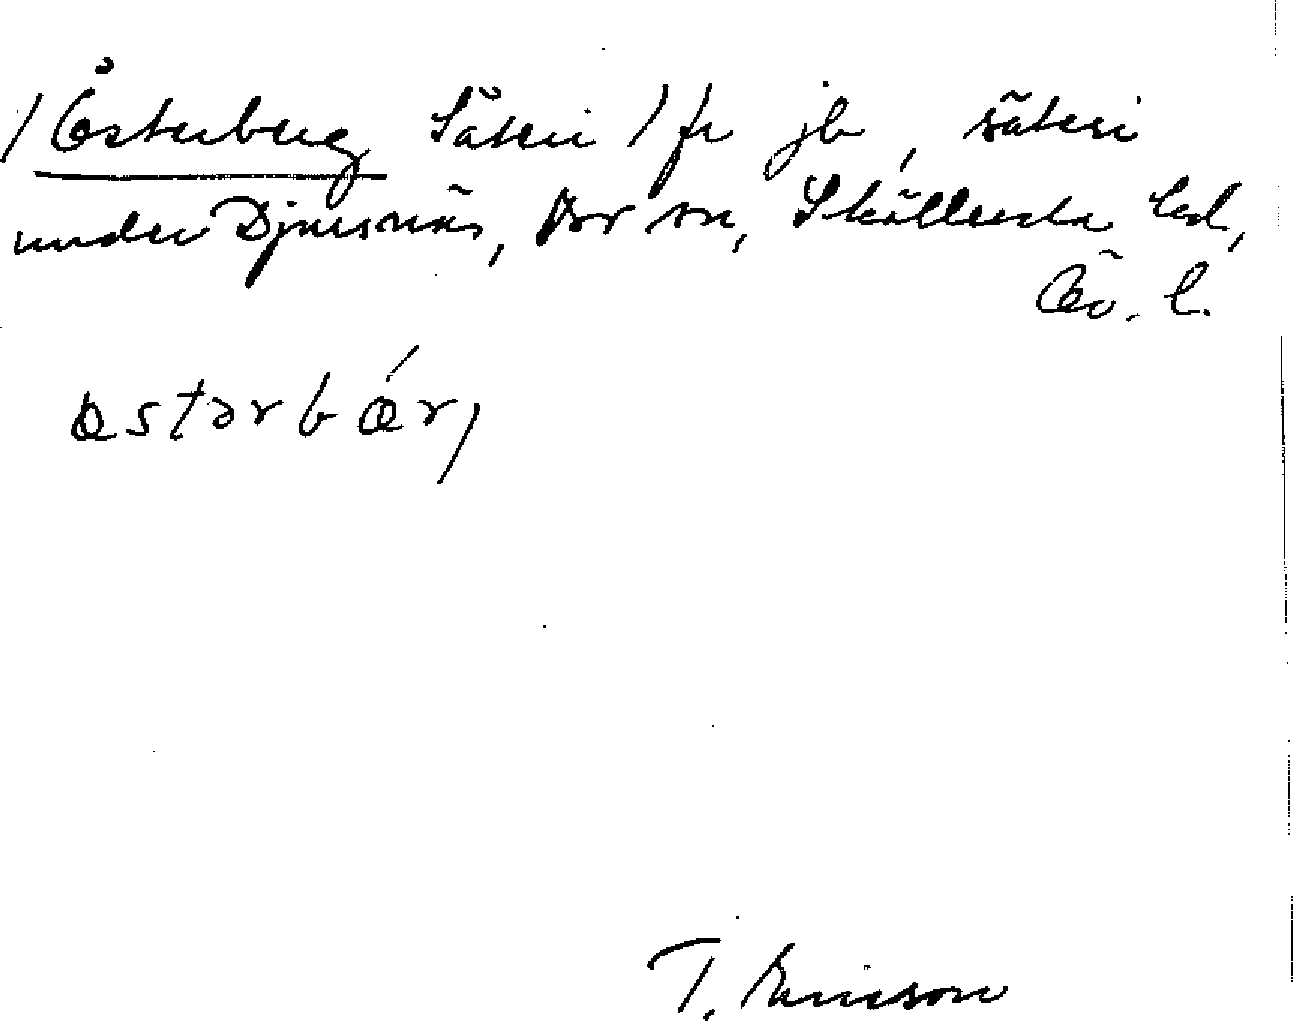 /Österberg Säteri / fr jb, säteri
under Djursnäs, Dor sn, Skällersta hd,
Ör. l.
østərbǿrj
T. Ericsson